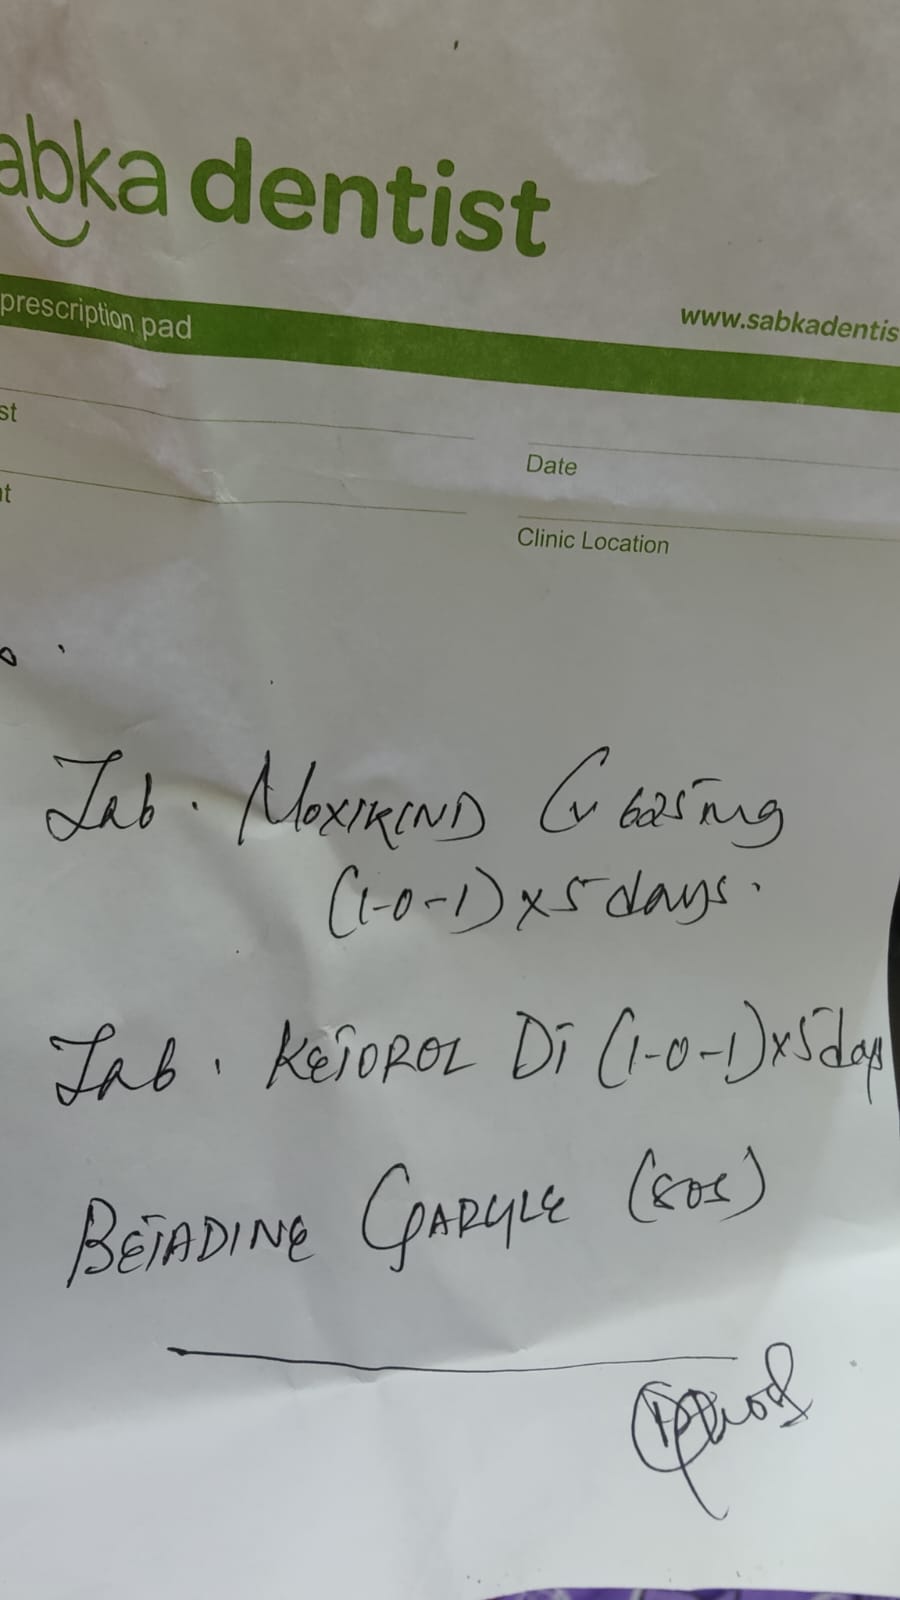 abka dentist
prescription pad
www.sabkadentis
st
Date
nt
Clinic Location
Tab. MOXIKIND CV 625 mg
(1-0-1) x 5 days.
Tab. KETOROL DT (1-0-1) x 5 day
BETADINE GARGLE (SOS)